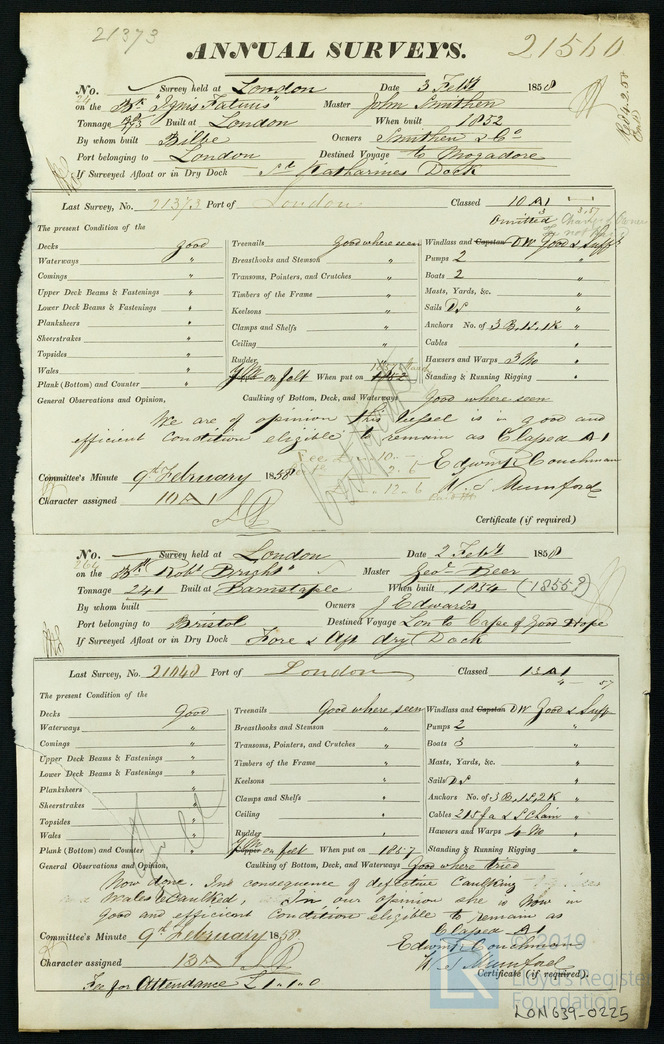 21373
ANNUAL SURVEYS.
21560
No. Survey held at London Date 3 Feby 1858
24 on the Bk "Ignis Fatuus" Master John Smithen
Tonnage Built at London When built 1852
By whom built Bilbe Owners Smithen & Co
Port belonging to London Destined Voyage to Mogadore
If Surveyed Afloat or in Dry Dock St Katharines Dock
Last Survey, No. 21373 Port of London Classed 10 A 1
3,57
Omitted
The present Condition of the
Decks good Treenails Good where seen Windlass and Capstan DW Good & Suff
Waterways " Breasthooks and Stemson " Pumps 2 "
Comings " Transoms, Pointers, and Crutches " Boats 2 "
Upper Deck Beams & Fastenings " Timbers of the Frame " Masts, Yards, &c. "
Lower Deck Beams & Fastenings " Keelsons " Sails DS "
Planksheers " Clamps and Shelfs " Anchors No. of 3 B, 1S, 1K "
Sheerstrakes " Ceiling " Cables "
Topsides " Rudder " Hawsers and Warps 3 No "
Wales " YM on felt When put on 1852 Standing & Running Rigging "
Plank (Bottom) and Counter "
General Observations and Opinion, Caulking of Bottom, Deck, and Waterways Good where seen
We are of opinion this Vessel is in good and
efficient Condition eligible to remain as Classed A 1
Edwmd Couchman
W. S Mumford
Committee's Minute 9th February 1858
Character assigned 10 A 1
Certificate (if required)
No. Survey held at London Date 2 Feby 1858
264 on the Bk "Robt Bright" Master Geoe Beer
Tonnage 241 Built at Barnstaple When built 1854 (1855?)
By whom built Owners J Edwards
Port belonging to Bristol Destined Voyage Lon to Cape of Good Hope
If Surveyed Afloat or in Dry Dock Fore & Aft dry Dock
Last Survey, No. 21048 Port of London Classed 13 A 1
" - 57
The present Condition of the
Decks Good Treenails Good where seen Windlass and Capstan DW Good & Suff
Waterways " Breasthooks and Stemson " Pumps 2 "
Comings " Transoms, Pointers, and Crutches " Boats 3 "
Upper Deck Beams & Fastenings " Timbers of the Frame " Masts, Yards, &c. "
Lower Deck Beams & Fastenings " Keelsons " Sails DS "
Planksheers " Clamps and Shelfs " Anchors No. of 3 B, 1S, 2K "
Sheerstrakes " Ceiling " Cables 215 fa & S Chain "
Topsides " Rudder " Hawsers and Warps 4 No "
Wales " Copper YM on felt When put on 1857 Standing & Running Rigging "
Plank (Bottom) and Counter "
General Observations and Opinion, Caulking of Bottom, Deck, and Waterways Good where tried
Now done. In consequence of defective Caulking
Wales Caulked, In our opinion she is now in
good and efficient Condition eligible to remain as
Classed A 1
Edwmd Couchman
W. S Mumford
Committee's Minute 9th February 1858
Character assigned 13 A 1
Certificate (if required).
Fee for Attendance £1.1.0
© 2019
Lloyd's Register
Foundation
LON639-0225